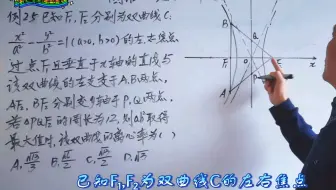 例25 已知F₁,F₂分别为双曲线C:
x²/a² - y²/b² = 1 (a>0, b>0)的左右焦点
过点F₁且垂直于x轴的直线与
该双曲线的左支交于A,B两点,
AF₂,BF₂分别交y轴于P,Q两点,
若△PQF₂的周长为12,则ab取得
最大值时,该双曲线的离心率为( )
A. B. C. D.
B
A
O
已知F₁,F₂为双曲线C的左右焦点